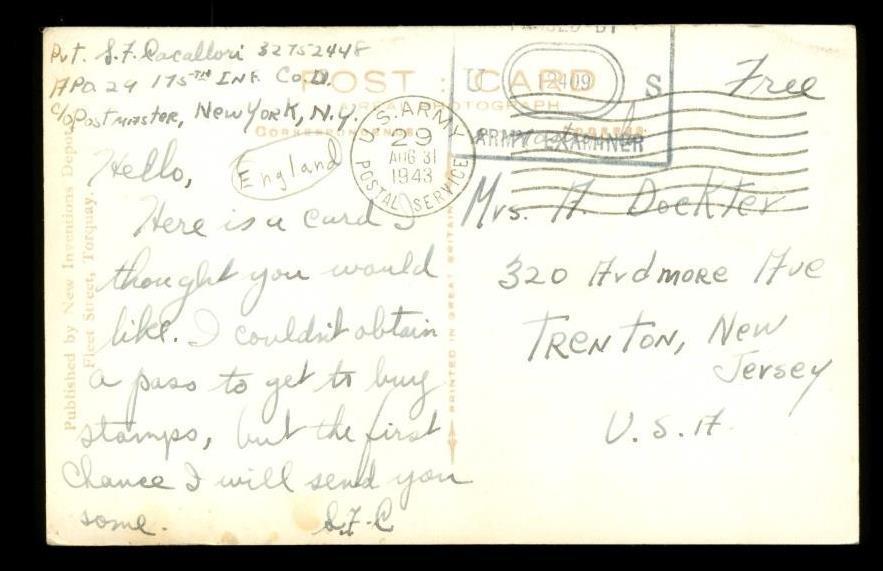 Pvt. S.F. Cacallori 32752448
APO. 29 175TH INF. Co. D.
c/o Postmaster, New York, N.Y.
POST CARD
A REAL PHOTOGRAPH
CORRESPONDENCE
England
U.S. ARMY
29
AUG 31
1943
POSTAL SERVICE
PASSED BY
U 2409 S
ARMY EXAMINER
Free
Hello,
Here is a card I
thought you would
like. I couldn't obtain
a pass to get to buy
stamps, but the first
chance I will send you
some. S.F.C
Mrs. A. Dockter
320 Ardmore Ave
TRENTON, New
Jersey
U.S.A.
Published by New Inventions Depot,
Fleet Street, Torquay.
PRINTED IN GREAT BRITAIN